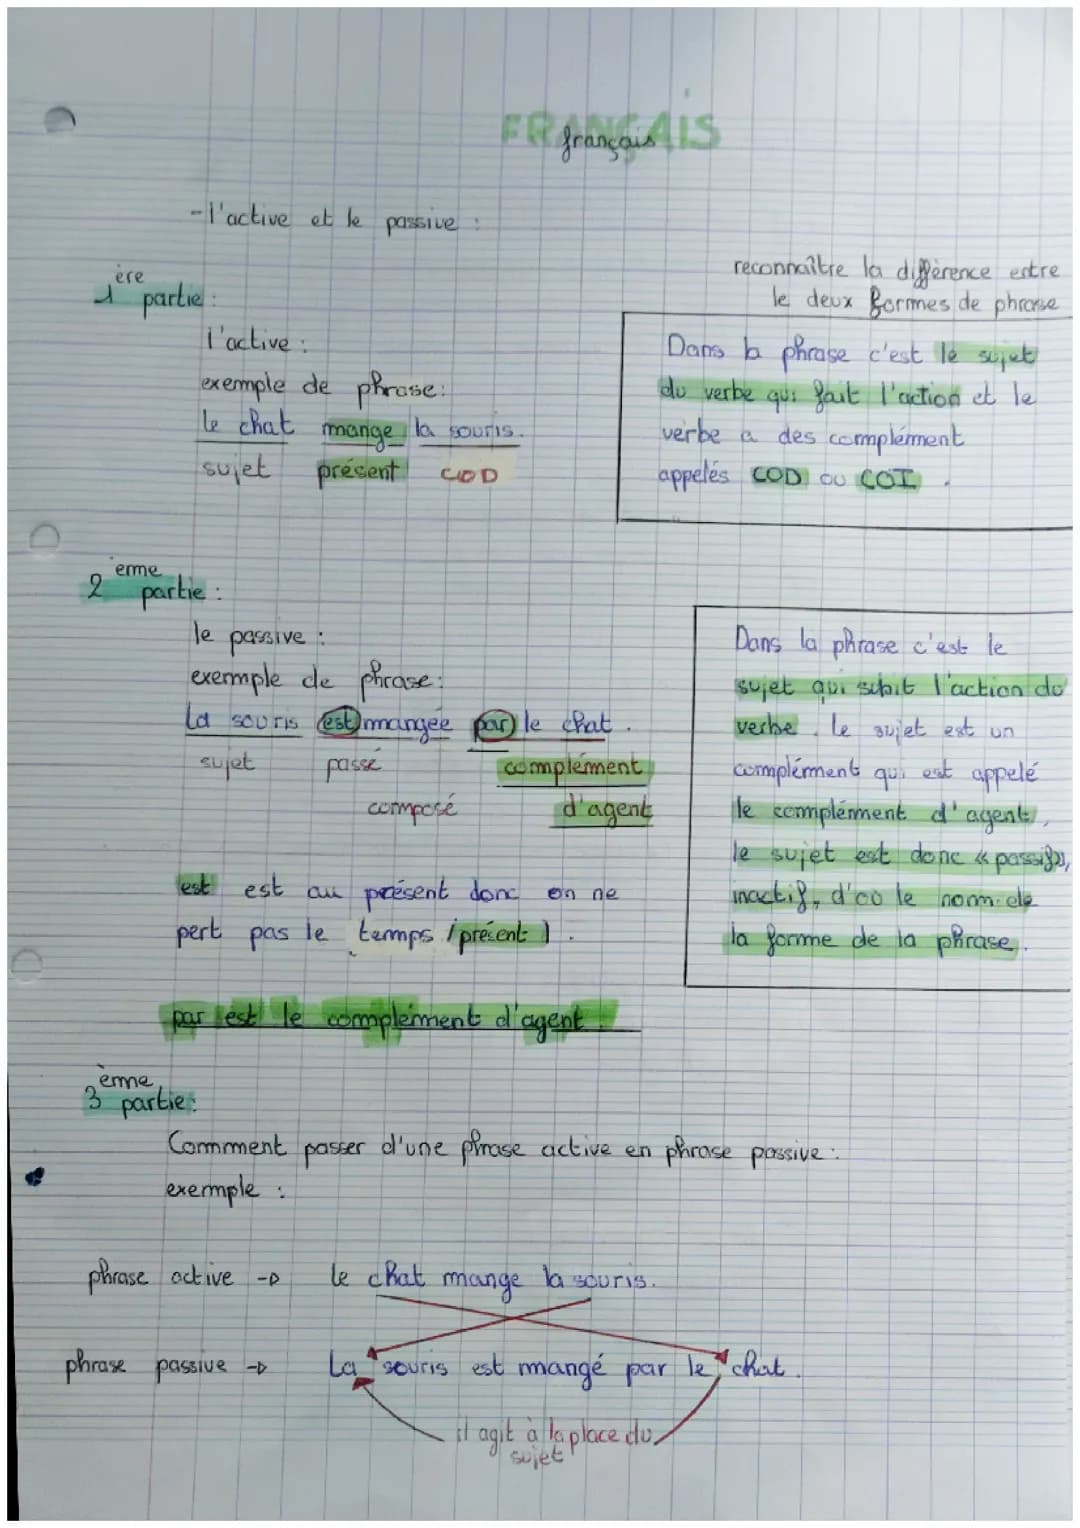 FRANÇAIS
français
-l'active et le passive :
1ère partie :
l'active :
exemple de phrase :
le chat mange la souris.
sujet présent COD
reconnaître la différence entre
le deux formes de phrase
Dans la phrase c'est le sujet
du verbe qui fait l'action et le
verbe a des complément
appelés COD ou COI .
2 eme partie :
le passive :
exemple de phrase :
La souris est mangée par le chat .
sujet passé complément
composé d'agent
est est au présent donc on ne
pert pas le temps (présent) .
par est le complément d'agent .
Dans la phrase c'est le
sujet qui subit l'action du
verbe . le sujet est un
complément qui est appelé
le complément d'agent,
le sujet est donc « passif»,
inactif, d'où le nom de
la forme de la phrase .
3 ème partie :
Comment passer d'une phrase active en phrase passive :
exemple :
phrase active -> le chat mange la souris.
phrase passive -> La souris est mangé par le chat .
il agit à la place du
sujet